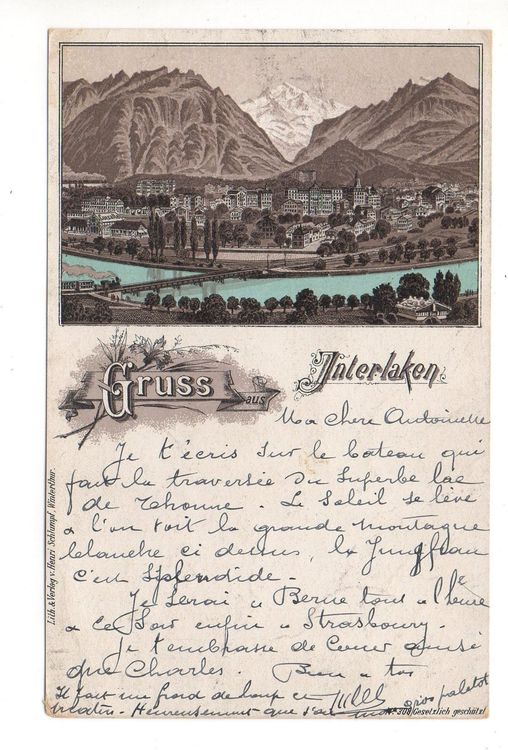 Gruss aus Interlaken.
Ma chere Antoinette
Je t'écris sur le bateau qui
fait la traversée du superbe lac
de Thoune. Le Soleil se lève
& l'on voit la grande montagne
blanche ci dessus, la Jungfrau
c'est splendide.
Je serai a Berne tout a l'heure
& ce soir enfin a Strasbourg.
Je t'embrasse de cœur ainsi
que Charles. Bien a toi
Il fait un froid de loup ce
matin. Heureusement que j'ai mon gros paletot
Lith. & Verlag v. Henri Schlumpf, Winterthur.
No. 308 Gesetzlich geschützt